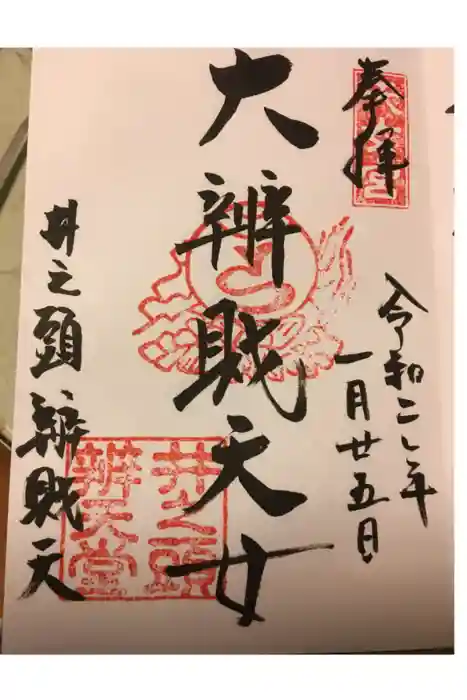 奉拝
令和二年
一月廿五日
大辨財天女
井之頭辨財天
井之頭
辨天堂